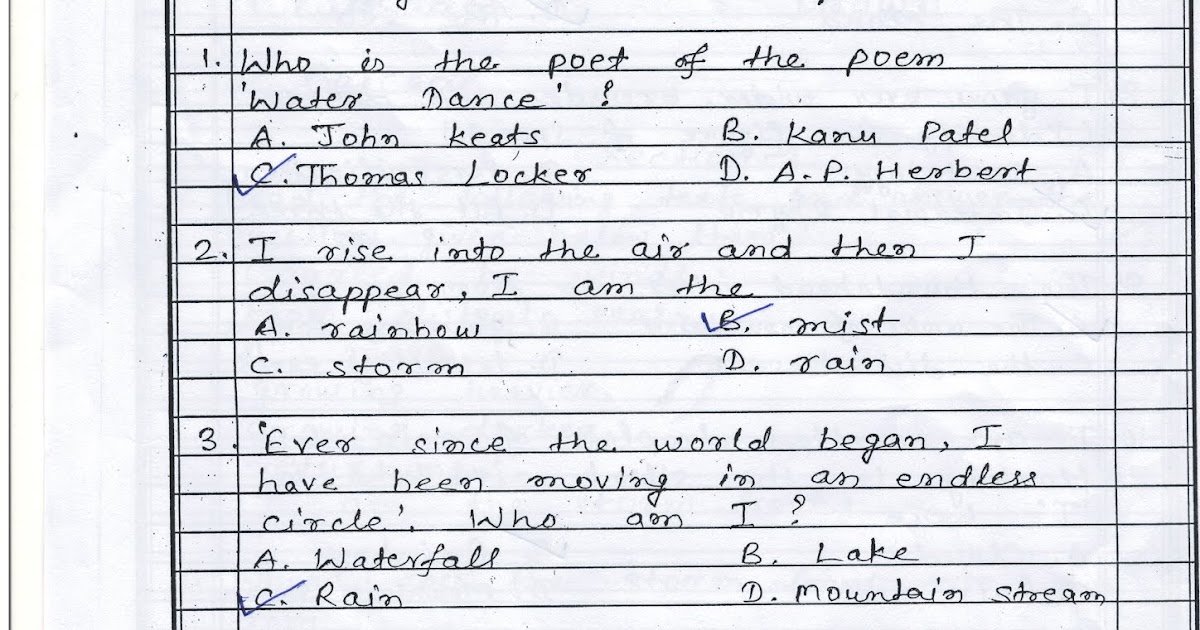 1. Who is the poet of the poem
'Water Dance' ?
A. John Keats B. Kanu Patel
C. Thomas Locker D. A.P. Herbert
2. I rise into the air and then I
disappear, I am the
A. rainbow B. mist
C. storm D. rain
3. 'Ever since the world began, I
have been moving in an endless
circle'. Who am I ?
A. Waterfall B. Lake
C. Rain D. Mountain stream